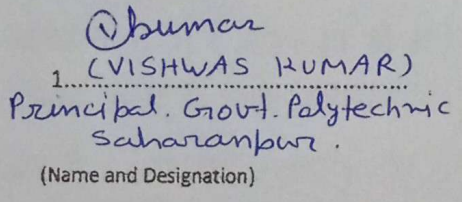 Vkumar
(VISHWAS KUMAR)
1..............................................
Principal. Govt. Polytechnic
Saharanpur.
(Name and Designation)